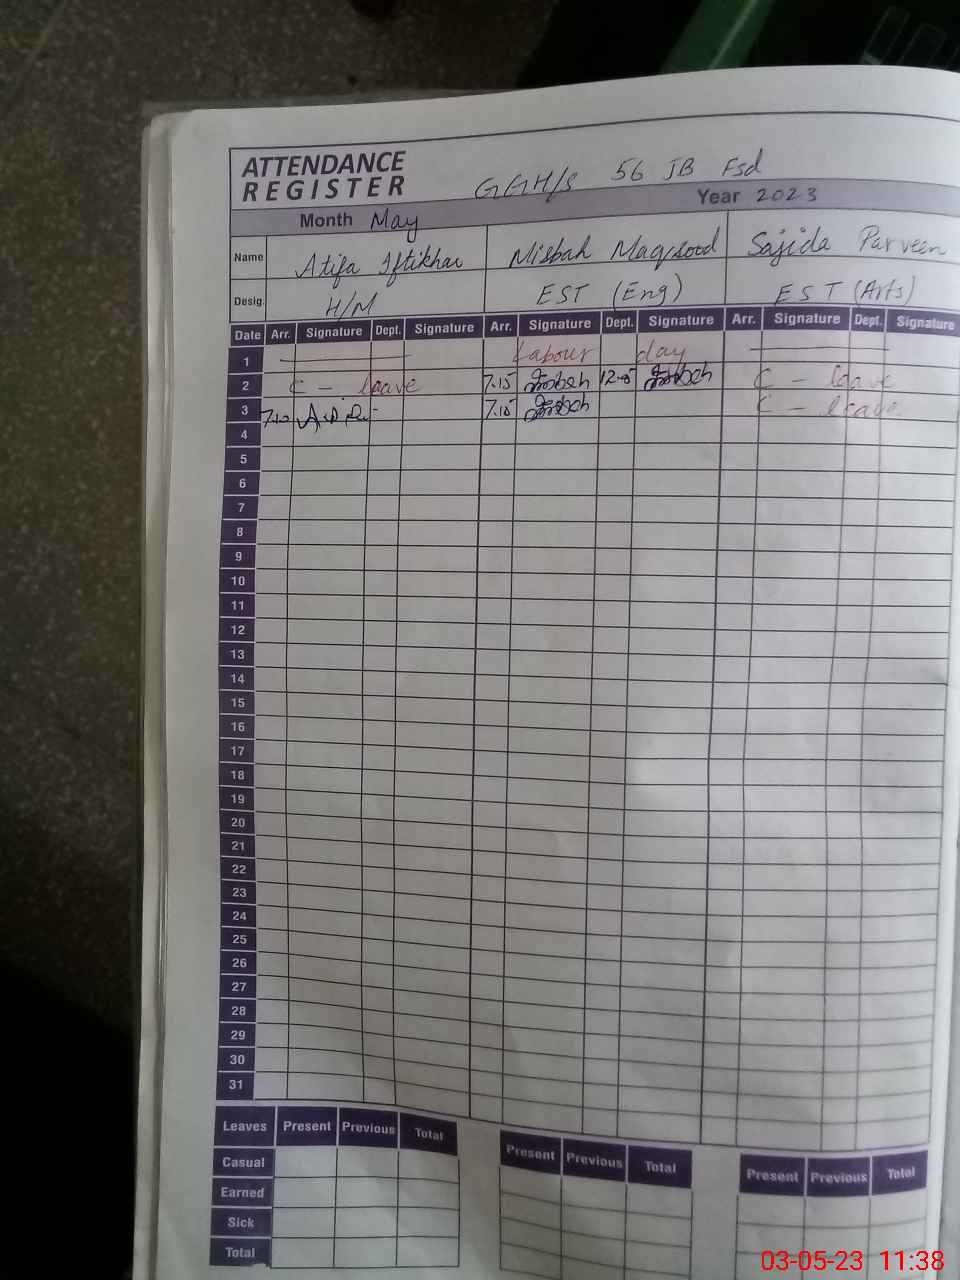 ATTENDANCE
REGISTER
GGH/S 56 JB Fsd
Month May Year 2023
Name Atifa Iftikhar Misbah Maqsood Sajida Parveen
Desig. H/M EST (Eng) EST (Arts)
Date Arr. Signature Dept. Signature Arr. Signature Dept. Signature Arr. Signature Dept. Signature
1 Labour day
2 C - leave 7.15 12.15 C - leave
3 7.10 7.15 C - leave
4
5
6
7
8
9
10
11
12
13
14
15
16
17
18
19
20
21
22
23
24
25
26
27
28
29
30
31
Leaves Present Previous Total Present Previous Total Present Previous Total
Casual
Earned
Sick
Total
03-05-23 11:38